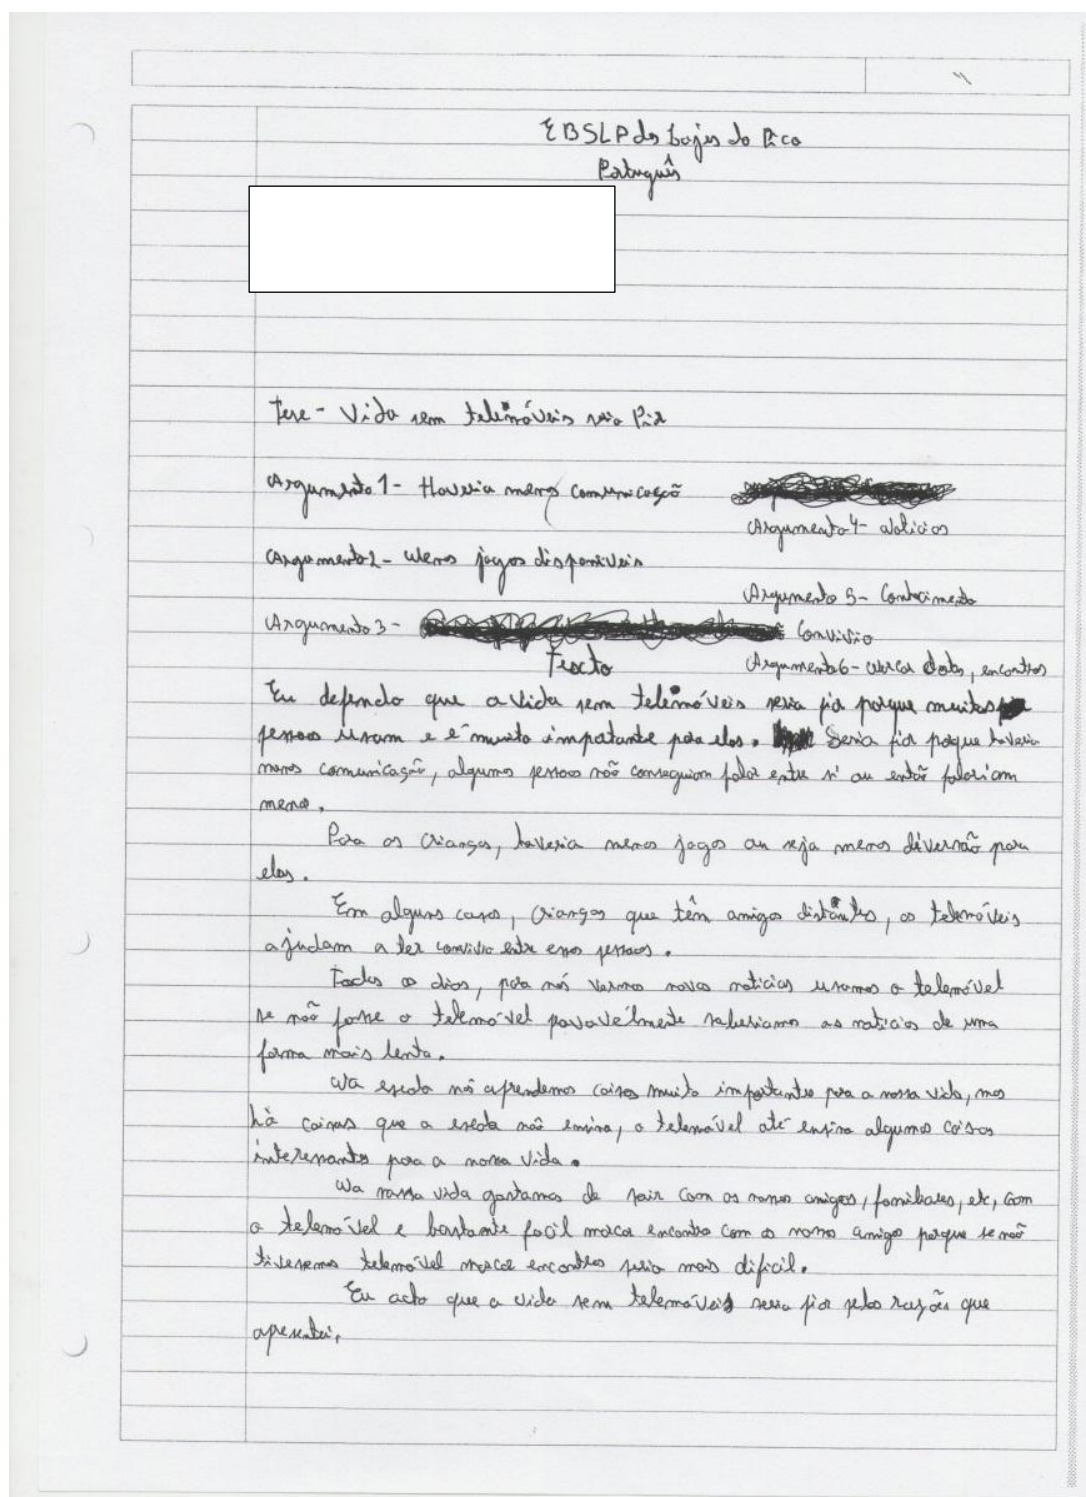 EBSLP das Lajes do Pico
Português
Tese - Vida sem telemóveis seria Pior
Argumento 1 - Haveria menos comunicação
Argumento 4 - Noticias
Argumento 2 - Menos jogos disponiveis
Argumento 5 - Conhecimento
Argumento 3 - Convivio
Argumento 6 - Marcar datas, encontros
Texto
Eu defendo que a vida sem telemóveis seria pior porque muitas
pessoas usam e é muito importante para elas. Seria pior porque haveria
menos comunicação, algumas pessoas não conseguiam falar entre si ou então falariam
menos.
Para as crianças, haveria menos jogos ou seja menos diversão para
elas.
Em alguns casos, crianças que têm amigos distantes, os telemóveis
ajudam a ter convivio entre essas pessoas.
Todos os dias, para nós vermos novas noticias usamos o telemóvel
se não fosse o telemóvel provavélmente saberiamos as noticias de uma
forma mais lenta.
Na escola nós aprendemos coisas muito importantes para a nossa vida, mas
há coisas que a escola não ensina, o telemóvel até ensina algumas coisas
interessantes para a nossa vida.
Na nossa vida gostamos de sair com os nossos amigos, familiares, etc, com
o telemóvel e bastante facil marcar encontro com os nossos amigos porque se não
tivessemos telemóvel marcar encontros seria mais dificil.
Eu acho que a vida sem telemóveis seria pior pelas razões que
apresentei.